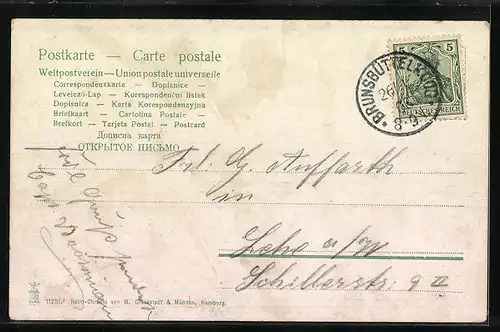 Postkarte — Carte postale
Weltpostverein — Union postale universelle
Correspondenzkarte — Dopisnice —
Levelező-Lap — Korespondenční lístek
Dopisnica — Karta Korespondencyjna
Briefkaart — Cartolina Postale —
Brefkort — Tarjeta Postal — Postcard
Дописна карта
ОТКРЫТОЕ ПИСЬМО
5 5
DEUTSCHES REICH
BRUNSBÜTTELKOOG
26
Frl. G. Auffarth
in
Lehe a/W
Schillerstr. 9 II
von M. Glückstadt & Münden, Hamburg.